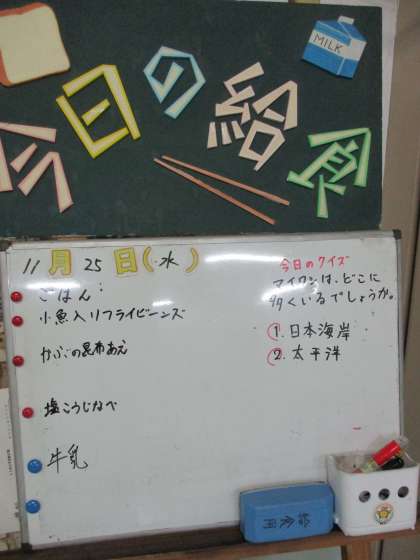 今日の給食
MILK
11月25日(水)
ごはん
小魚入りフライビーンズ
かぶの昆布あえ
塩こうじなべ
牛乳
今日のクイズ
マイワシは、どこに
多くいるでしょうか。
①.日本海岸
②.太平洋